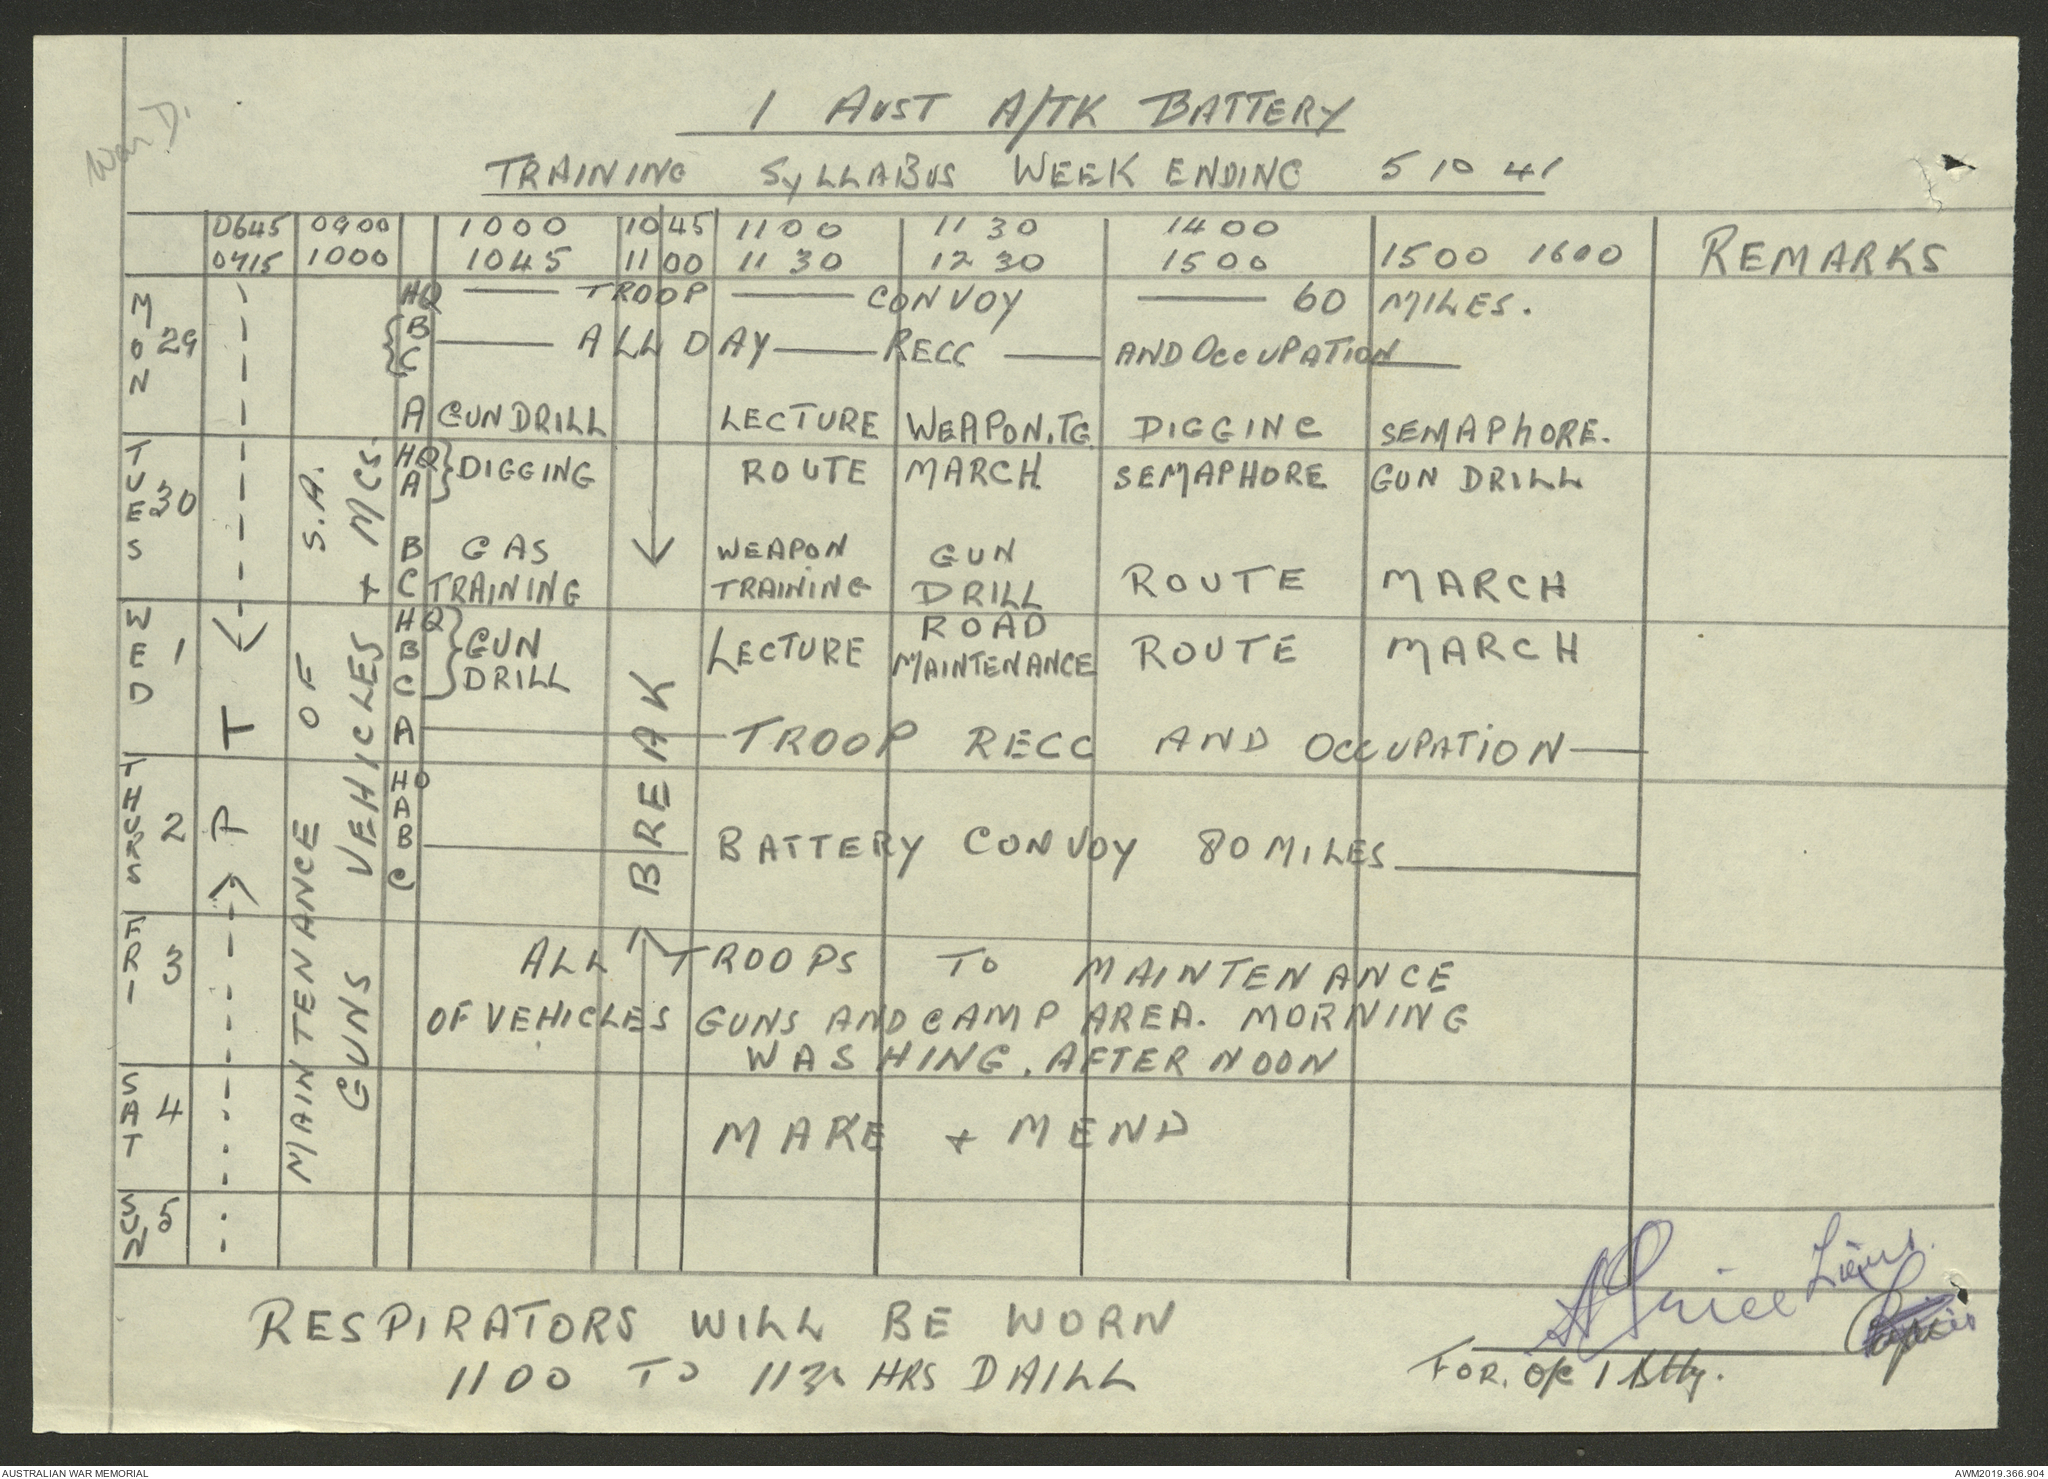 War D.
1 AUST A/TK BATTERY
TRAINING SYLLABUS WEEK ENDING 5 10 41
0645 0900 1000 1045 1100 1130 1400
0715 1000 1045 1100 1130 1230 1500 1500 1600 REMARKS
MON 29 HQ — TROOP — CONVOY — 60 MILES.
{ B C — ALL DAY — RECC — AND OCCUPATION —
A GUN DRILL LECTURE WEAPON. TG DIGGING SEMAPHORE.
TUES 30 HQ A } DIGGING ROUTE MARCH SEMAPHORE GUN DRILL
B GAS WEAPON GUN
C TRAINING TRAINING DRILL ROUTE MARCH
WED 1 HQ B C } GUN DRILL LECTURE ROAD MAINTENANCE ROUTE MARCH
A — TROOP RECC AND OCCUPATION —
THURS 2 HQ A B C — BATTERY CONVOY 80 MILES —
FRI 3 ALL TROOPS TO MAINTENANCE
OF VEHICLES GUNS AND CAMP AREA. MORNING
WASHING. AFTERNOON
SAT 4 MAKE + MEND
SUN 5
P T
MAINTENANCE OF S.A.
GUNS VEHICLES + MCS.
BREAK
RESPIRATORS WILL BE WORN
1100 TO 1130 HRS DRILL
Lieut.
FOR. O/C 1 Btty.
AUSTRALIAN WAR MEMORIAL
AWM2019.366.904